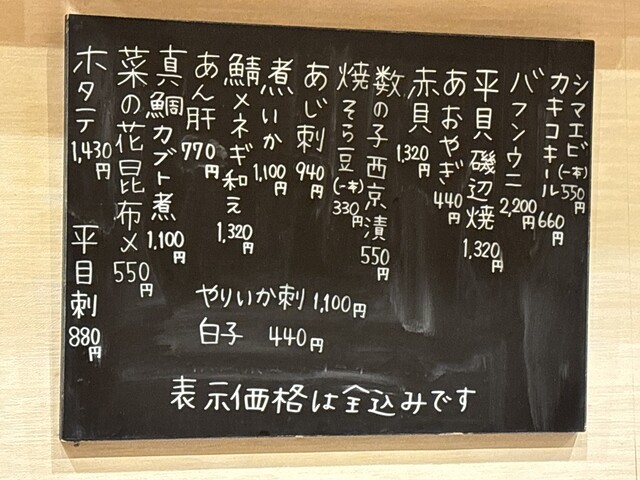 シマエビ(一本)550円
カキコキール660円
バフンウニ2,200円
平貝磯辺焼1,320円
あおやぎ440円
赤貝1,320円
数の子西京漬550円
焼そら豆(一本)330円
あじ刺940円
煮いか1,100円
鯖メネギ和え1,320円
あん肝770円
真鯛カブト煮1,100円
菜の花昆布〆550円
ホタテ1,430円
平目刺880円
やりいか刺1,100円
白子 440円
表示価格は全込みです